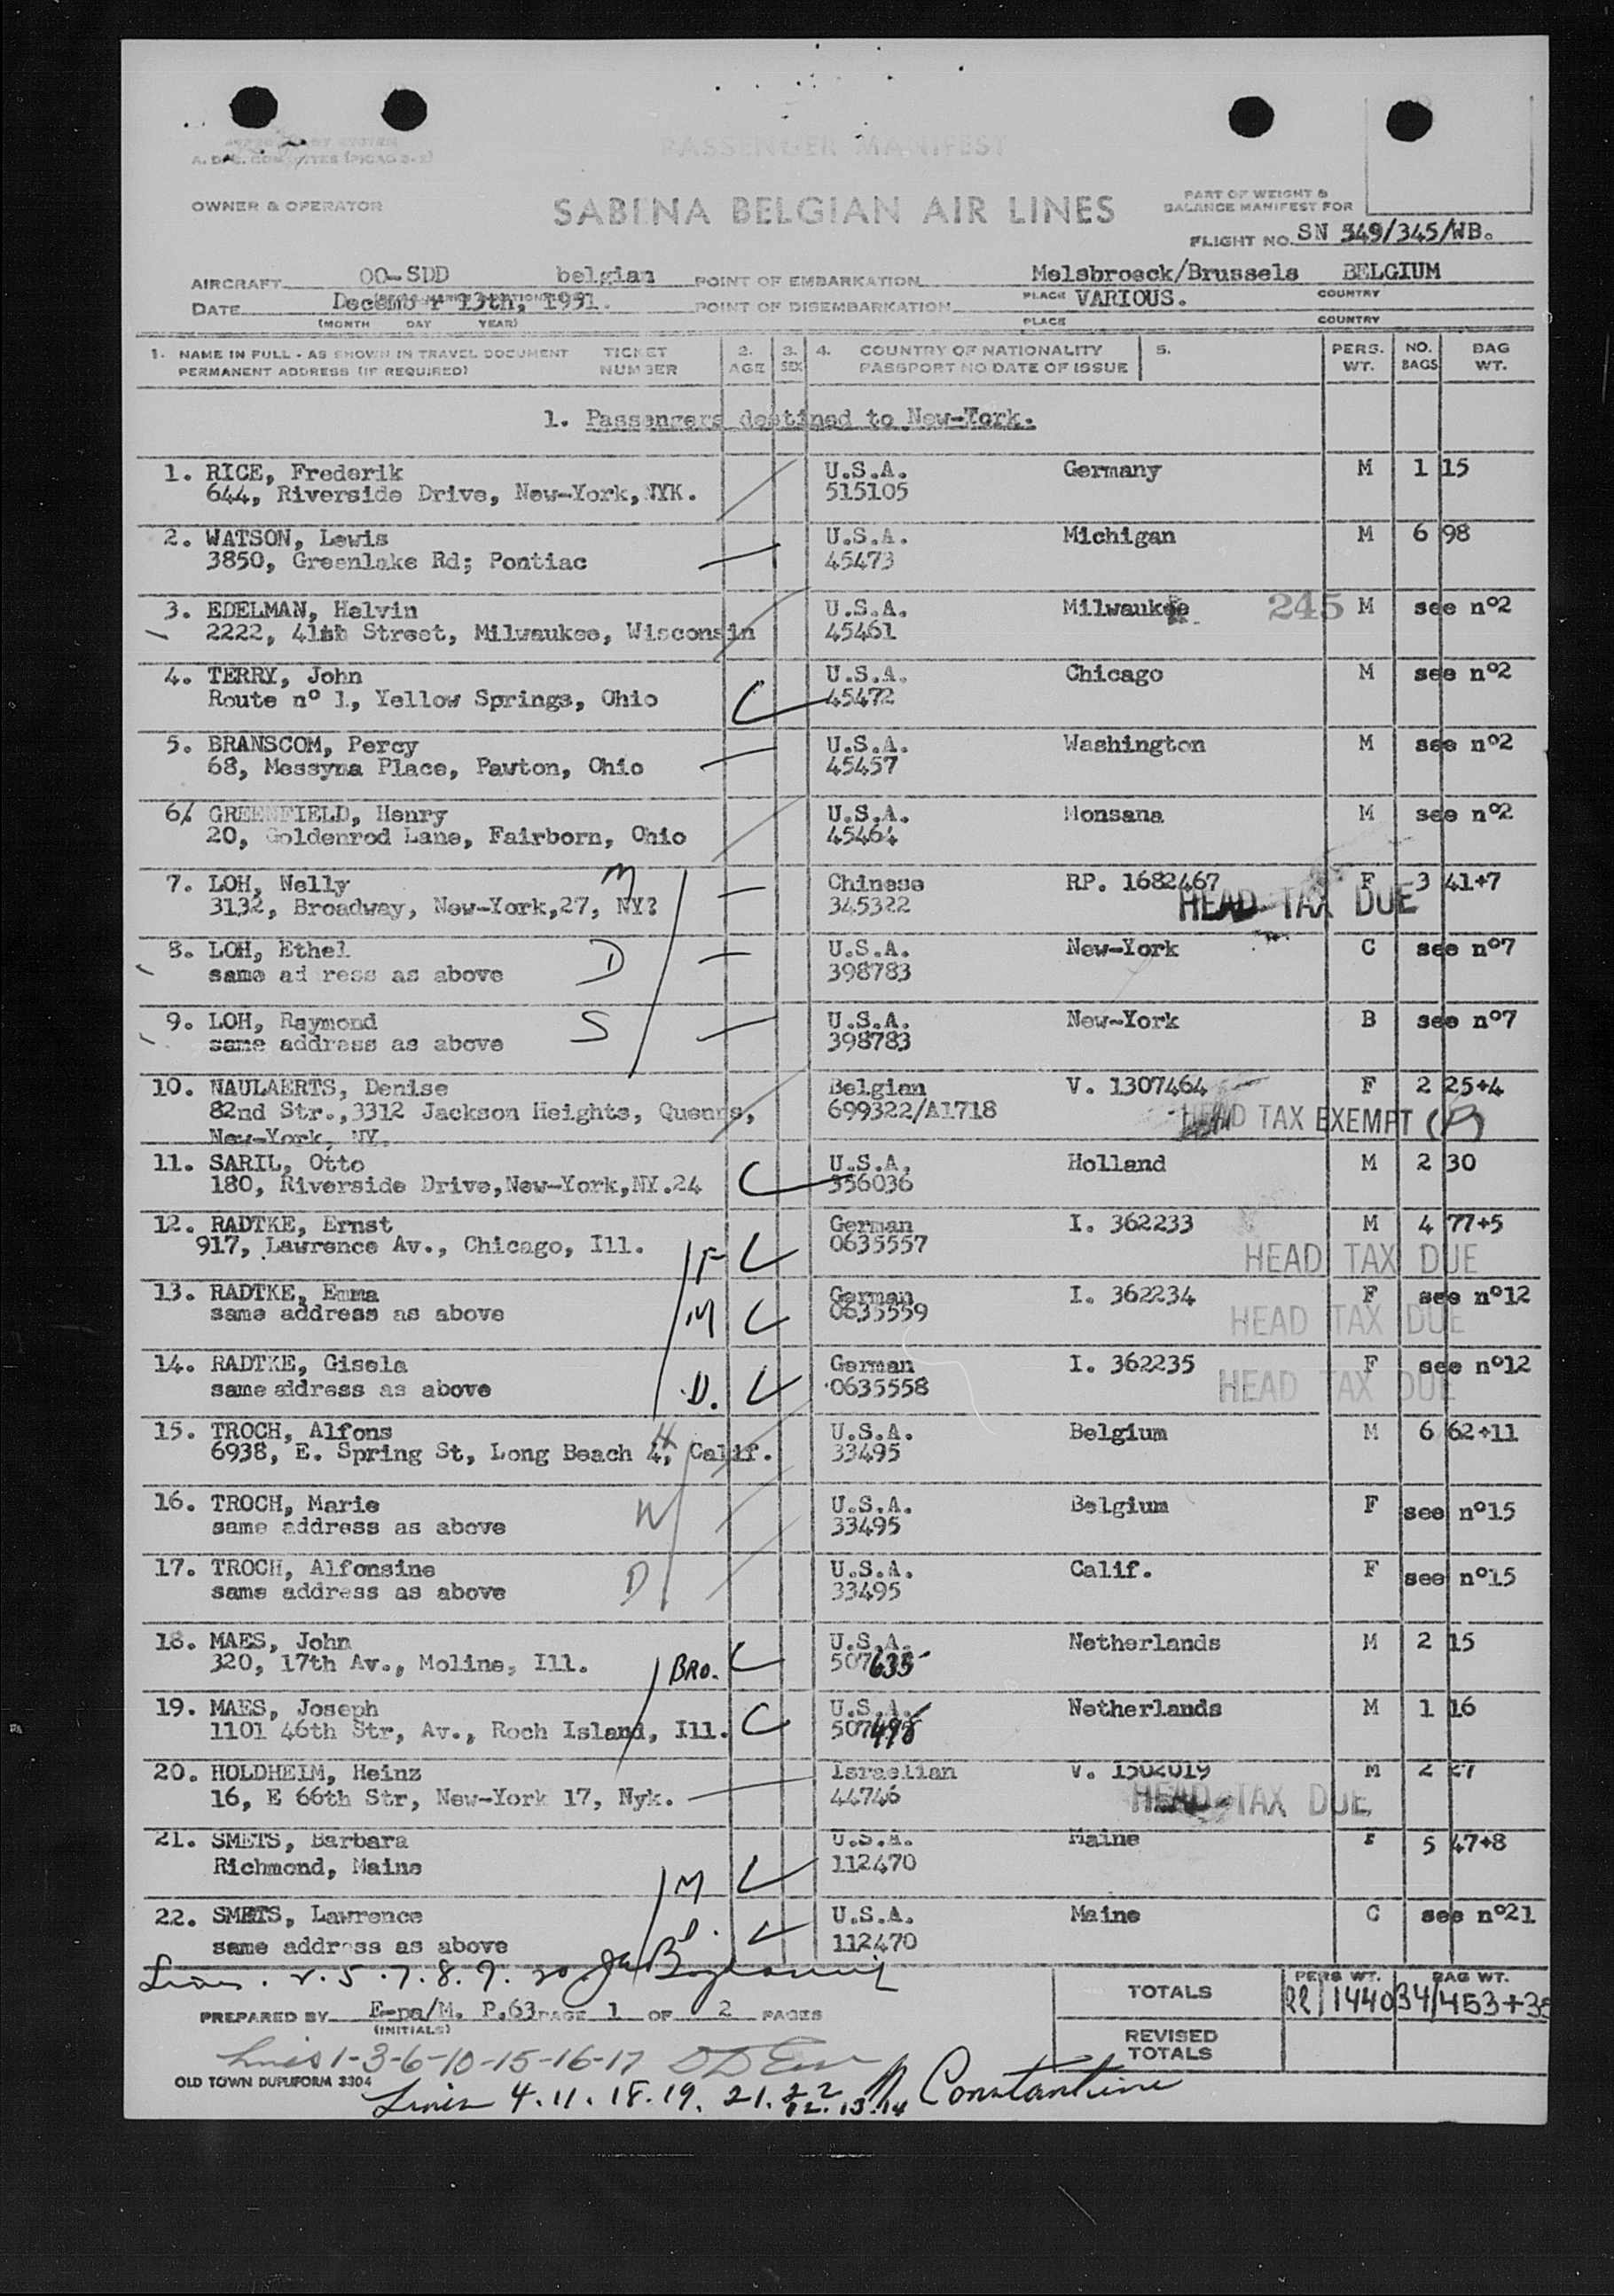 PASSENGER MANIFEST
OWNER & OPERATOR
SABENA BELGIAN AIR LINES
PART OF WEIGHT &
BALANCE MANIFEST FOR
FLIGHT NO. SN 349/345/WB.
AIRCRAFT OO-SDD belgian POINT OF EMBARKATION Melsbroeck/Brussels BELGIUM
DATE 13th, 1951. POINT OF DISEMBARKATION PLACE VARIOUS. COUNTRY
(MONTH DAY YEAR) PLACE COUNTRY
1. NAME IN FULL - AS SHOWN IN TRAVEL DOCUMENT TICKET 2. 3. 4. COUNTRY OF NATIONALITY 5. PERS. NO. BAG
PERMANENT ADDRESS (IF REQUIRED) NUMBER AGE SEX PASSPORT NO DATE OF ISSUE WT. BAGS WT.
1. Passengers destined to New-York.
1. RICE, Frederik U.S.A. Germany M 1 15
644, Riverside Drive, New-York, NYK. 515105
2. WATSON, Lewis U.S.A. Michigan M 6 98
3850, Greenlake Rd; Pontiac 45473
3. EDELMAN, Helvin U.S.A. Milwaukee 245 M see n°2
2222, Street, Milwaukee, Wisconsin 45461
4. TERRY, John U.S.A. Chicago M see n°2
Route n° 1, Yellow Springs, Ohio 45472
5. BRANSCOM, Percy U.S.A. Washington M see n°2
68, Messyna Place, Pawton, Ohio 45457
6. GREENFIELD, Henry U.S.A. Monsana M see n°2
20, Goldenrod Lane, Fairborn, Ohio 45464
7. LOH, Nelly M Chinese RP. 1682467 F 3 41+7
3132, Broadway, New-York,27, 345322 HEAD TAX DUE
8. LOH, Ethel D U.S.A. New-York C see n°7
same ad ress as above 398783
9. LOH, Raymond S U.S.A. New-York B see n°7
same address as above 398783
10. NAULAERTS, Denise Belgian V. 1307464 F 2 25+4
82nd Str.,3312 Jackson Heights, Queens, 699322/A1718 HEAD TAX EXEMPT
New-York, NY.
11. SARIL, Otto U.S.A. Holland M 2 30
180, Riverside Drive,New-York,NY.24 356036
12. RADTKE, Ernst German I. 362233 M 4 77+5
917, Lawrence Av., Chicago, Ill. F 0635557 HEAD TAX DUE
13. RADTKE, Emma German I. 362234 F see n°12
same address as above M 0635559 HEAD TAX DUE
14. RADTKE, Gisela German I. 362235 F see n°12
same address as above D. 0635558 HEAD TAX DUE
15. TROCH, Alfons H U.S.A. Belgium M 6 62+11
6938, E. Spring St, Long Beach 4, Calif. 33495
16. TROCH, Marie W U.S.A. Belgium F see n°15
same address as above 33495
17. TROCH, Alfonsine D U.S.A. Calif. F see n°15
same address as above 33495
18. MAES, John U.S.A. Netherlands M 2 15
320, 17th Av., Moline, Ill. BRO. 507635
19. MAES, Joseph U.S.A. Netherlands M 1 16
1101 46th Str, Av., Roch Island, Ill.
20. HOLDHEIM, Heinz Israelian V. 1502019 M 2 27
16, E 66th Str, New-York 17, Nyk. 44746 HEAD TAX DUE
21. SMETS, Barbara U.S.A. Maine F 5 47+8
Richmond, Maine M 112470
22. SMETS, Lawrence U.S.A. Maine C see n°21
same address as above 112470
Lines. 2.5.7.8.9. 20
TOTALS PERS WT. BAG WT.
22/1440 34/453+35
PREPARED BY E-pa/M. P.63 PAGE 1 OF 2 PAGES
(INITIALS)
REVISED
TOTALS
Lines 1-3-6-10-15-16-17
OLD TOWN DUPLIFORM 3304
Lines 4.11.18.19. 21.22 Constantine
12.13.14